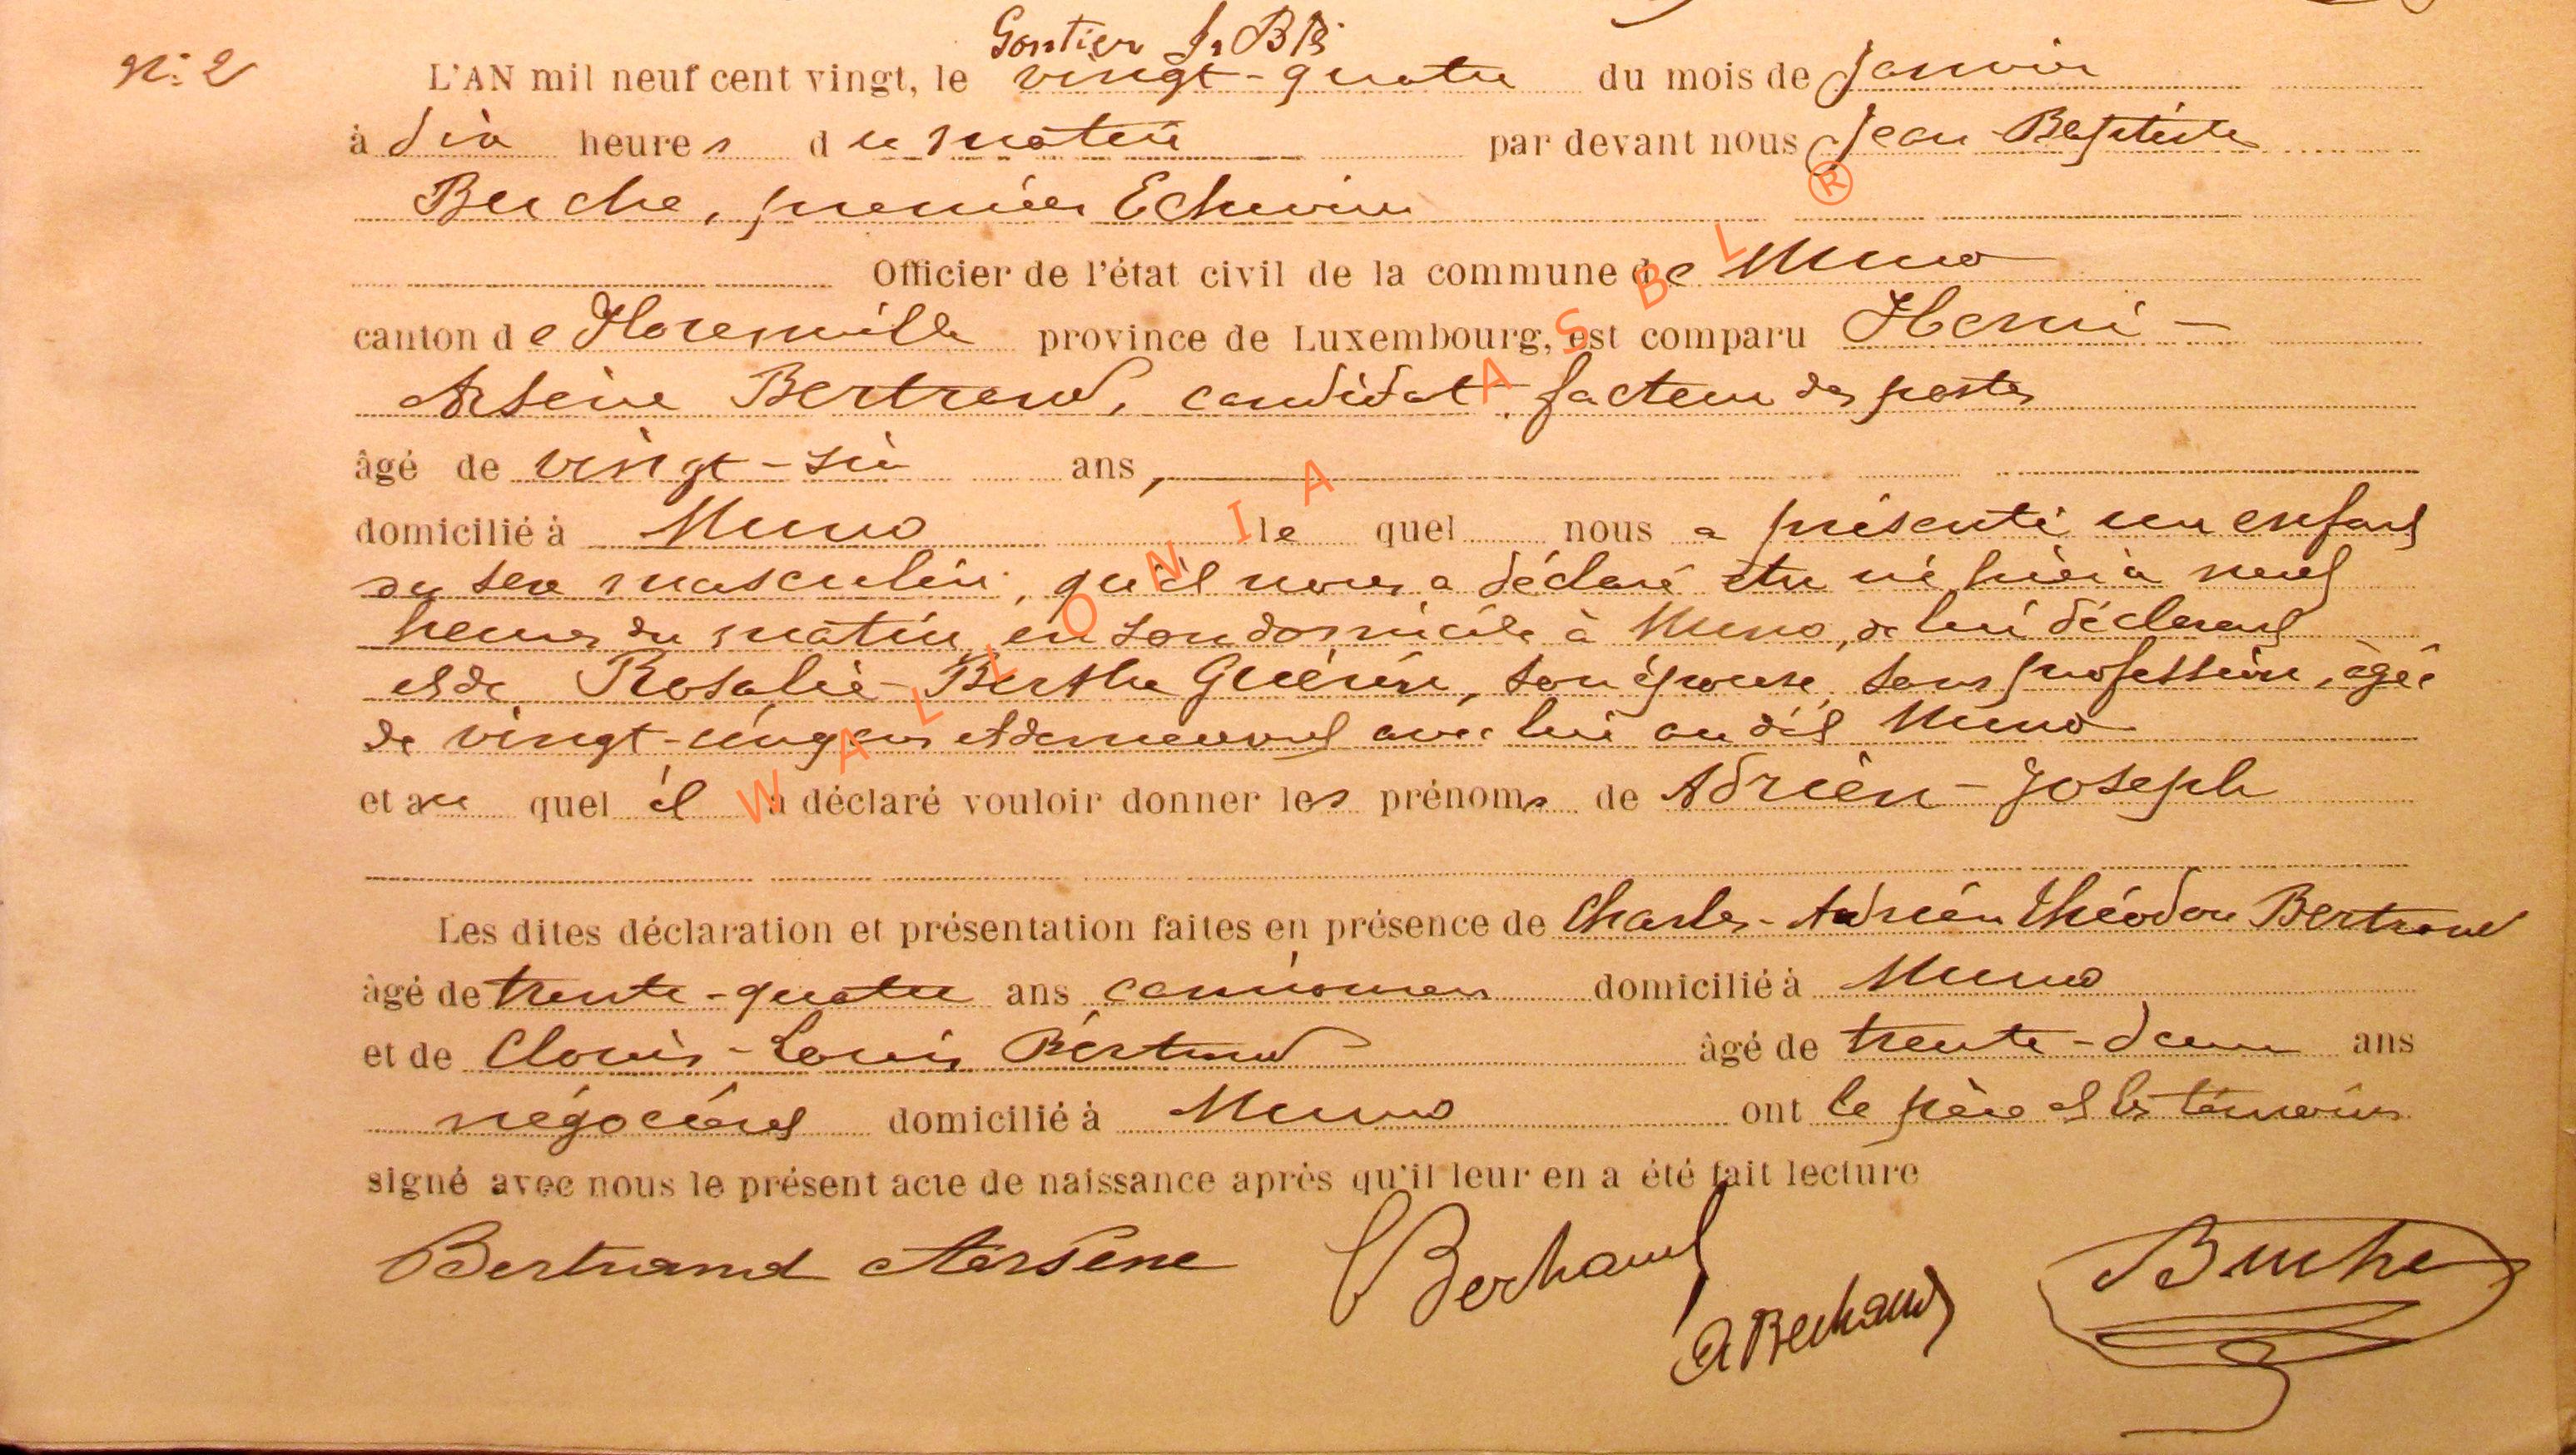 Gontier J. Bte
N° 2
L'AN mil neuf cent vingt, le vingt-quatre du mois de Janvier
à dix heures du matin par devant nous Jean Baptiste
Buche, premier Echevin
Officier de l'état civil de la commune de Muno
canton de Florenville province de Luxembourg, est comparu Henri-
Arsène Bertrand, candidat facteur des postes
âgé de vingt-six ans,
domicilié à Muno lequel nous a présenté un enfant
du sexe masculin, qu'il nous a déclaré être né hier à neuf
heures du matin, en son domicile à Muno, de lui déclarant
et de Rosalie-Berthe Guérin, son épouse, sans profession, âgée
de vingt-cinq ans et demeurant avec lui au dit Muno
et au quel il a déclaré vouloir donner les prénoms de Adrien-Joseph
Les dites déclaration et présentation faites en présence de Charles-Adrien Théodore Bertrand
âgé de trente-quatre ans domicilié à Muno
et de Clovis-Louis Bertrand âgé de trente-deux ans
négociant domicilié à Muno ont le père et les témoins
signé avec nous le présent acte de naissance après qu'il leur en a été fait lecture
Bertrand Arsène Bertrand Buche
A Bertrand
WALLONIA ASBL ®